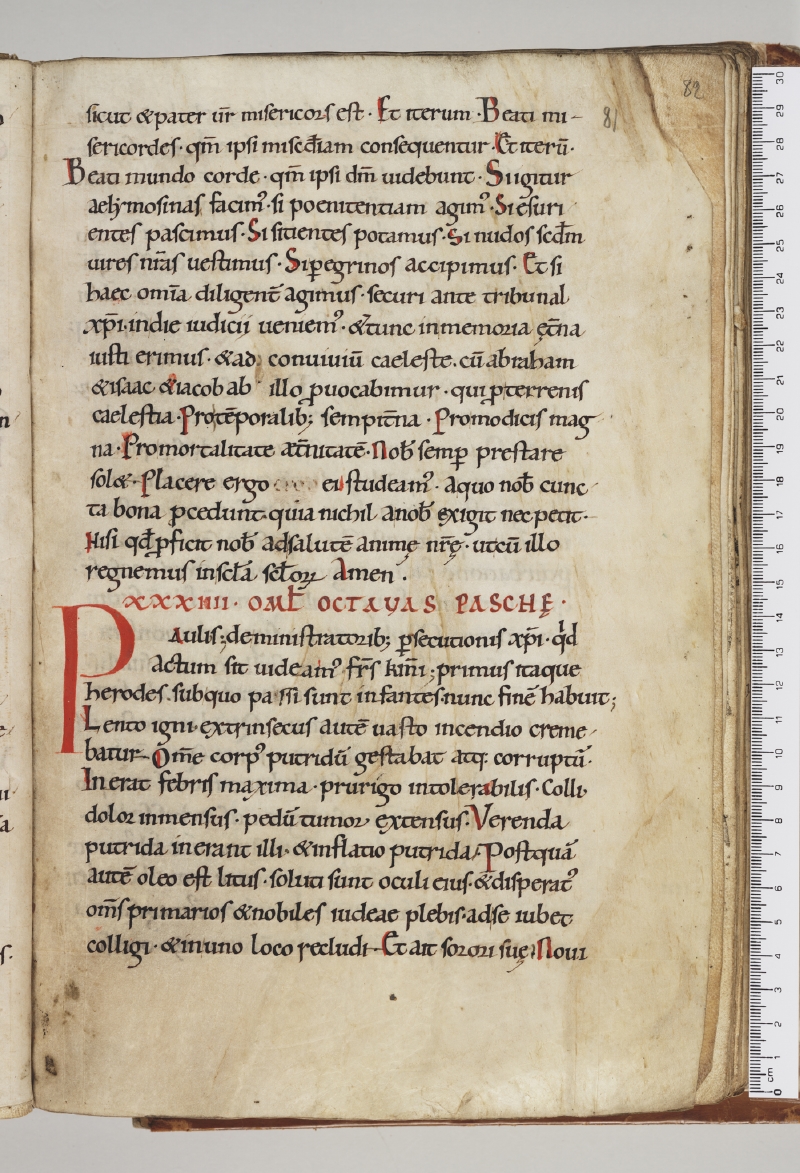 82
81
sicut & pater ur̄ misericors est · Et iterum · Beati mi-
sericordes · qm̄ ipsi misc̄diam consequentur · Et iterū ·
Beati mundo corde · qm̄ ipsi dm̄ uidebunt · Si igitur
aelymosinas facim᷒ · si poenitentiam agim᷒ · Si esuri
entes pascimus · Si sitientes potamus · Si nudos scd̄m
uires nr̄as uestimus · Si ꝑegrinos accipimus · Et si
haec omīa diligent̄ agimus · securi ante tribunal
xp̄i · in die iudicii ueniem᷒ · & tunc in memoria et̄na
iusti erimus · & ad conuiuiū caeleste · cū abraham
& isaac & iacob ab illo ꝓuocabimur · qui ꝓ terrenis
caelestia · Pro tēporalib; sempit̄na · Pro modicis mag
na · Pro mortalitate aet̄nitatē · Nob̄ semꝑ prestare
sol& · Placere ergo ei studeam᷒ · A quo nob̄ cunc
ta bona ꝓcedunt · quia nichil a nob̄ exigit nec petit ·
Nisi qd̄ ꝓficit nob̄ ad salutē animę nr̄ę · ut cū illo
regnemus in scl̄a scl̄oꝝ Amen ·
XXXIIII · OML̄ OCTAVAS PASCHĘ ·
PAulis; de ministratorib; ꝑsecutionis xp̄i · qd̄
actum sit uideam᷒ fr̄s km̄i; primus itaque
herodes · sub quo passi sunt infantes · nunc finē habuit;
Lento igni · extrinsecus autē uasto incendio creme
batur · Om̄e corp᷒ putridū gestabat atq: corruptū ·
Inerat febris maxima · prurigo intolerabilis · Colli
dolor inmensus · pedū tumor extensus · Verenda
putrida inerant illi · & inflatio putrida · Postquā
autē oleo est litus · soluti sunt oculi eius · & disperat᷒
om̄s primarios & nobiles iudeae plebis · ad se iubet
colligi · & in uno loco recludi · Et ait sorori suę · Noui